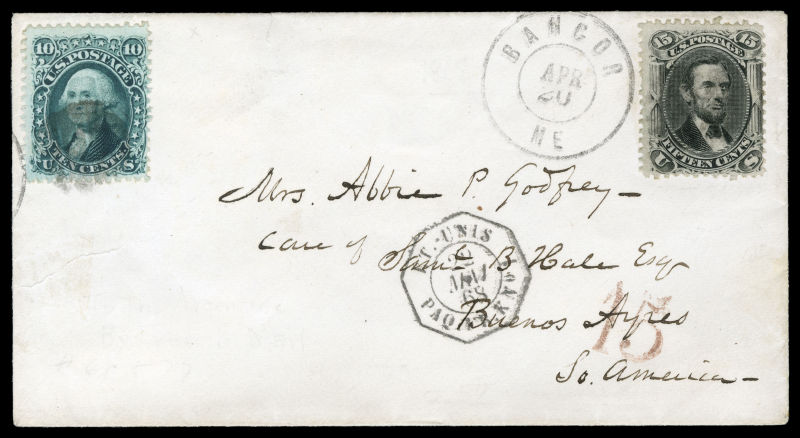 10 10
U.S. POSTAGE
TEN CENTS
U S
BANGOR
APR
20
ME
15 15
U.S. POSTAGE
FIFTEEN CENTS
U S
Mrs. Abbie P. Godfrey —
Care of Saml. B Hale Esq
Buenos Ayres
So. America —
T. UNIS
68
PAQ
15